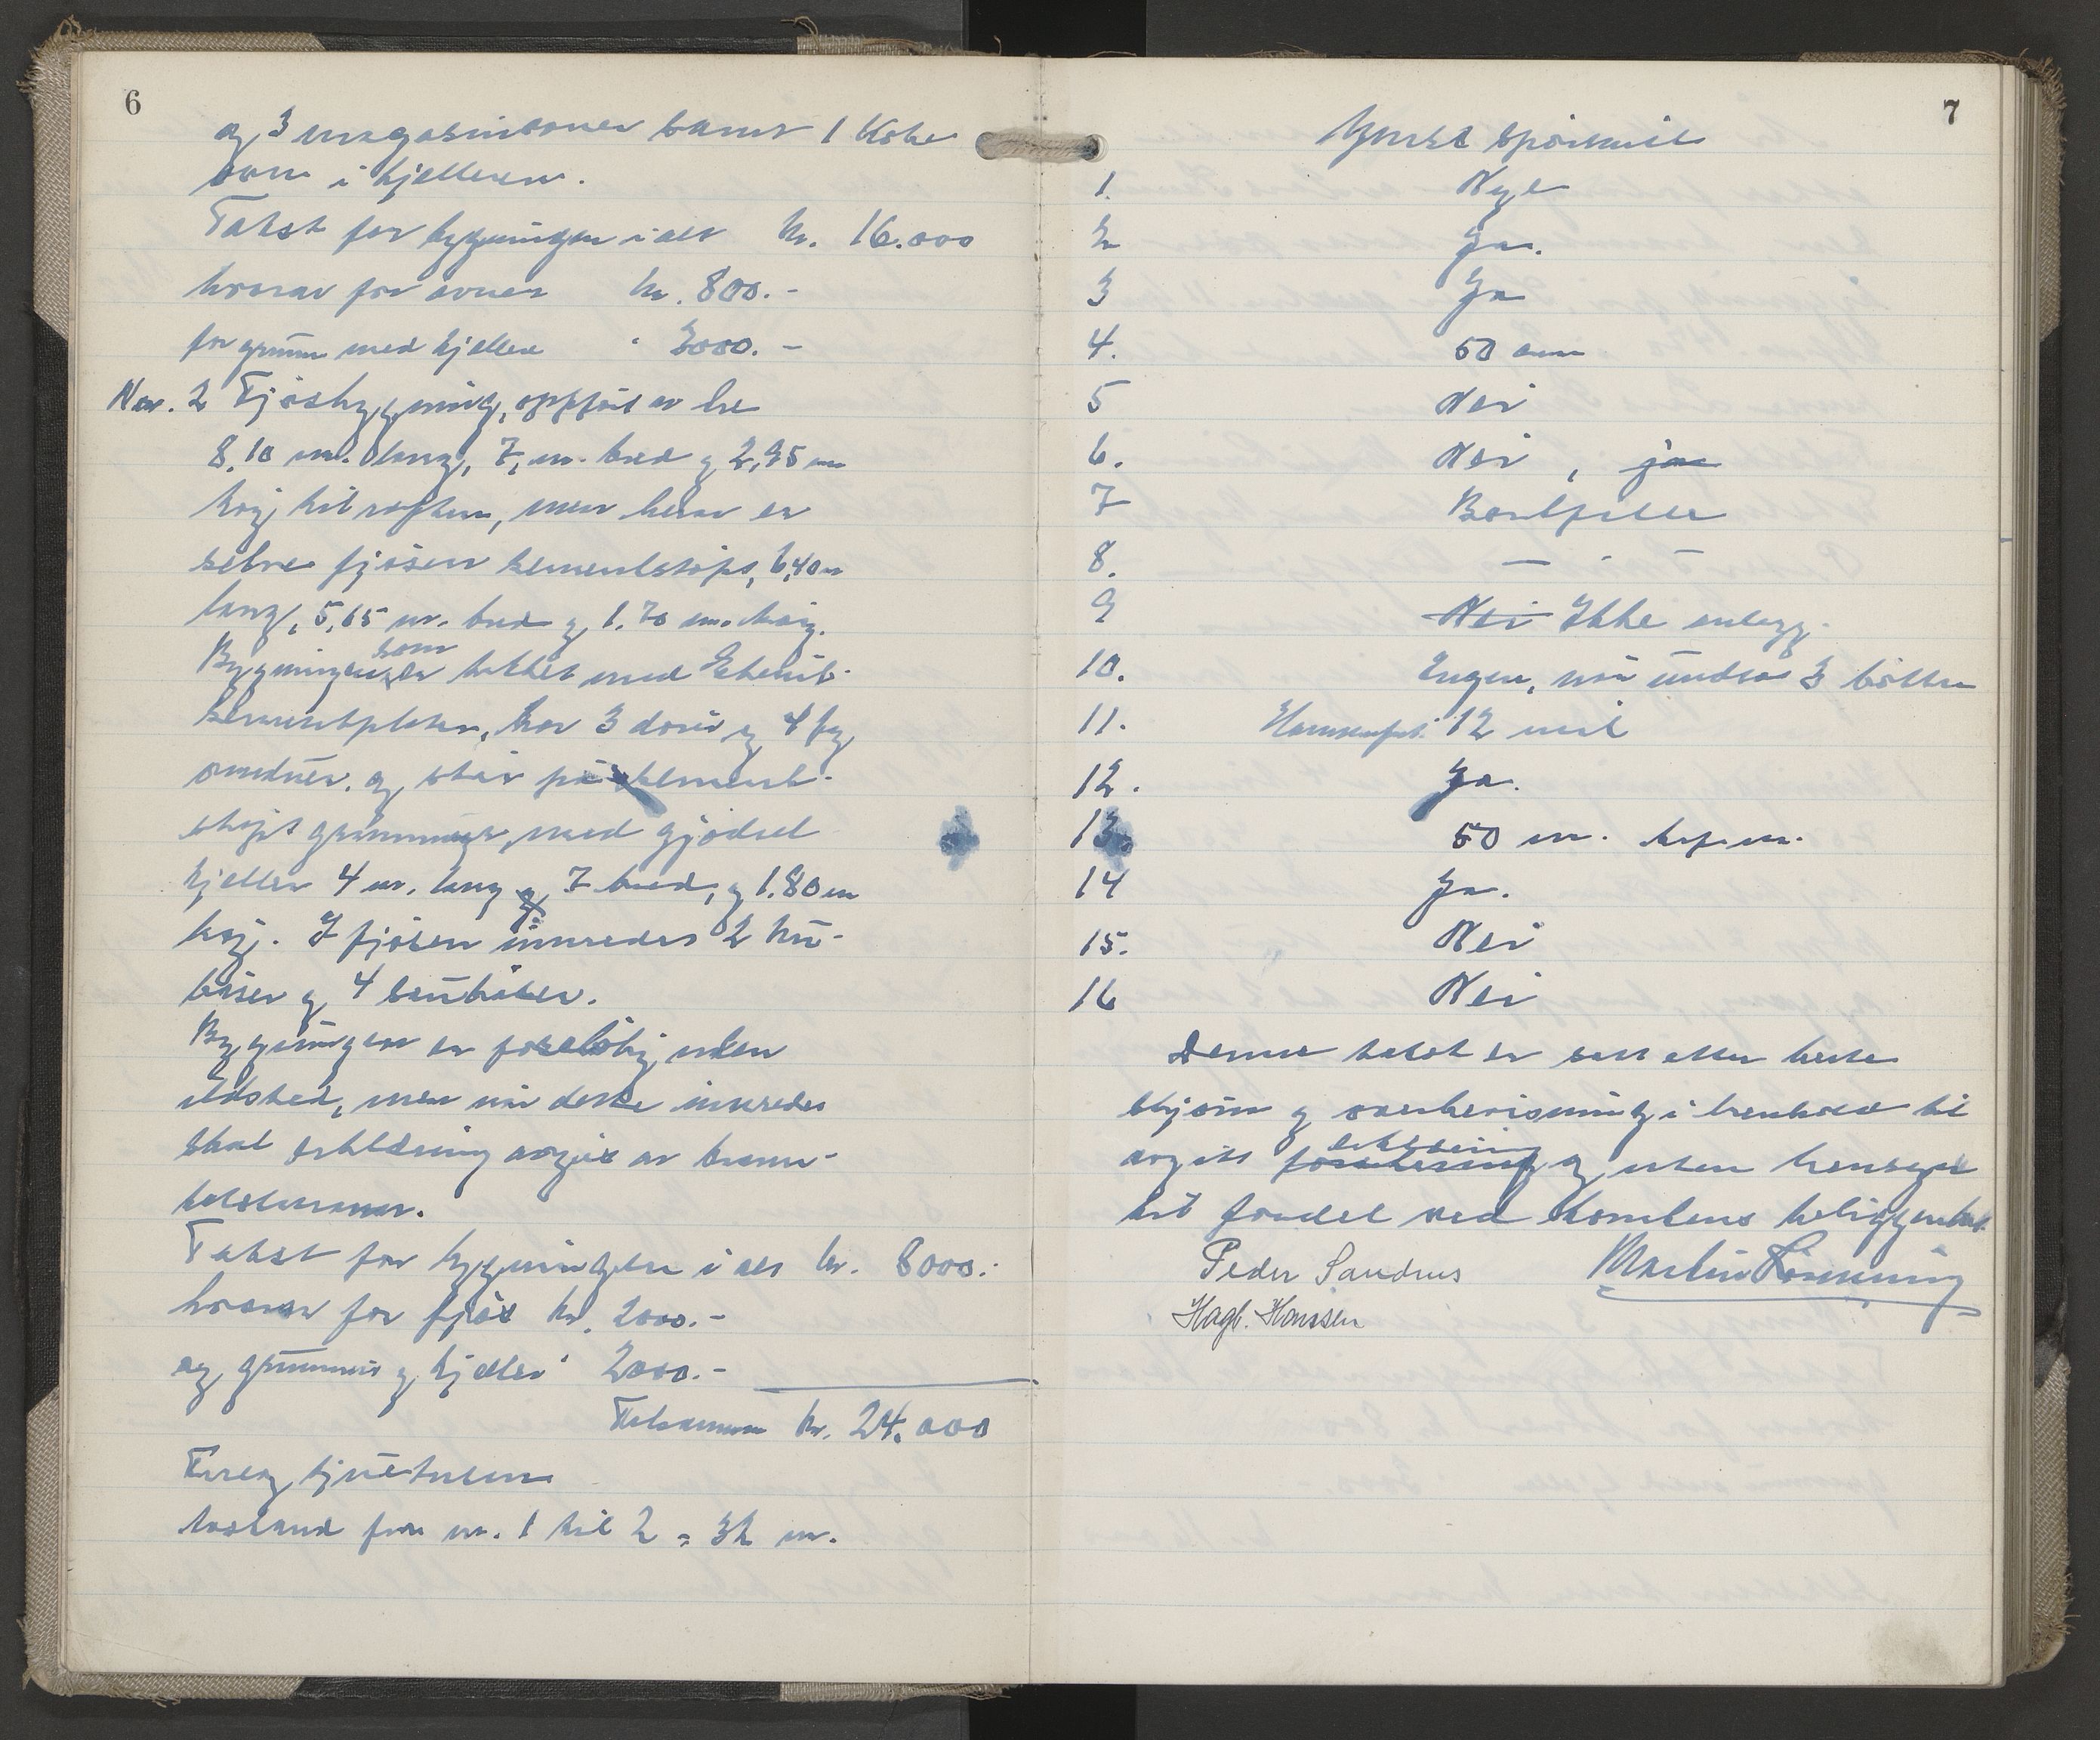 6
og 3 magasinovner samt 1 Koke
ovn i kjelleren.
Takst for bygningen i alt kr. 16.000
hvorav for ovner kr. 800.-
for grunn med kjeller " 3000.-
Nr. 2 Fjøsbygning, oppført av tre
8,10 m. lang, 7, m. bred og 2,95 m
høy til raften, men herav er
selve fjøsen sementstøpt, 6,40 m
lang, 5,65 m. bred og 1.70 m. høy.
Bygningen, som er tekket med Eternit-
sementplater, har 3 dører og 4 fag
vinduer. og står på sement-
støpt grunnmur, med gjødsel
kjeller 4 m. lang og 7 bred, og 1.80 m
høy. I fjøsen innredes 2 ku-
båser og 4 saubåser.
Bygningen er foreløbig uten
ildsted, men når dette innredes
skal erklæring avgies av brann-
takstmenn.
Takst for bygningen i alt kr. 8000.-
hvorav for fjøs kr. 2000.-
og grunnmur og kjeller " 2000.-
Takstsum kr. 24.000
Tireog tjuetusen
Avstand fra nr. 1 til 2 = 32 m.
7
Yorst spörsmål
1. Nye
2 Ja.
3 Ja
4. 50 cm
5 Nei
6. Nei , ja
7 Bordpeller
8. — " —
9 Nei Ikke anlegg.
10. Ingen, når undtas 3 bøtter
11. Hammerfest 12 mil
12. Ja.
13. 50 m.
14 Ja.
15. Nei
16 Nei
Denne takst er satt etter beste
skjønn og overbevisning i henhold til
avgitt forsikring erklæring og uten hensyn
til fordel ved tomtens beliggenhet.
Peder Sandnes Martin Rønning
Hagb. Hanssen